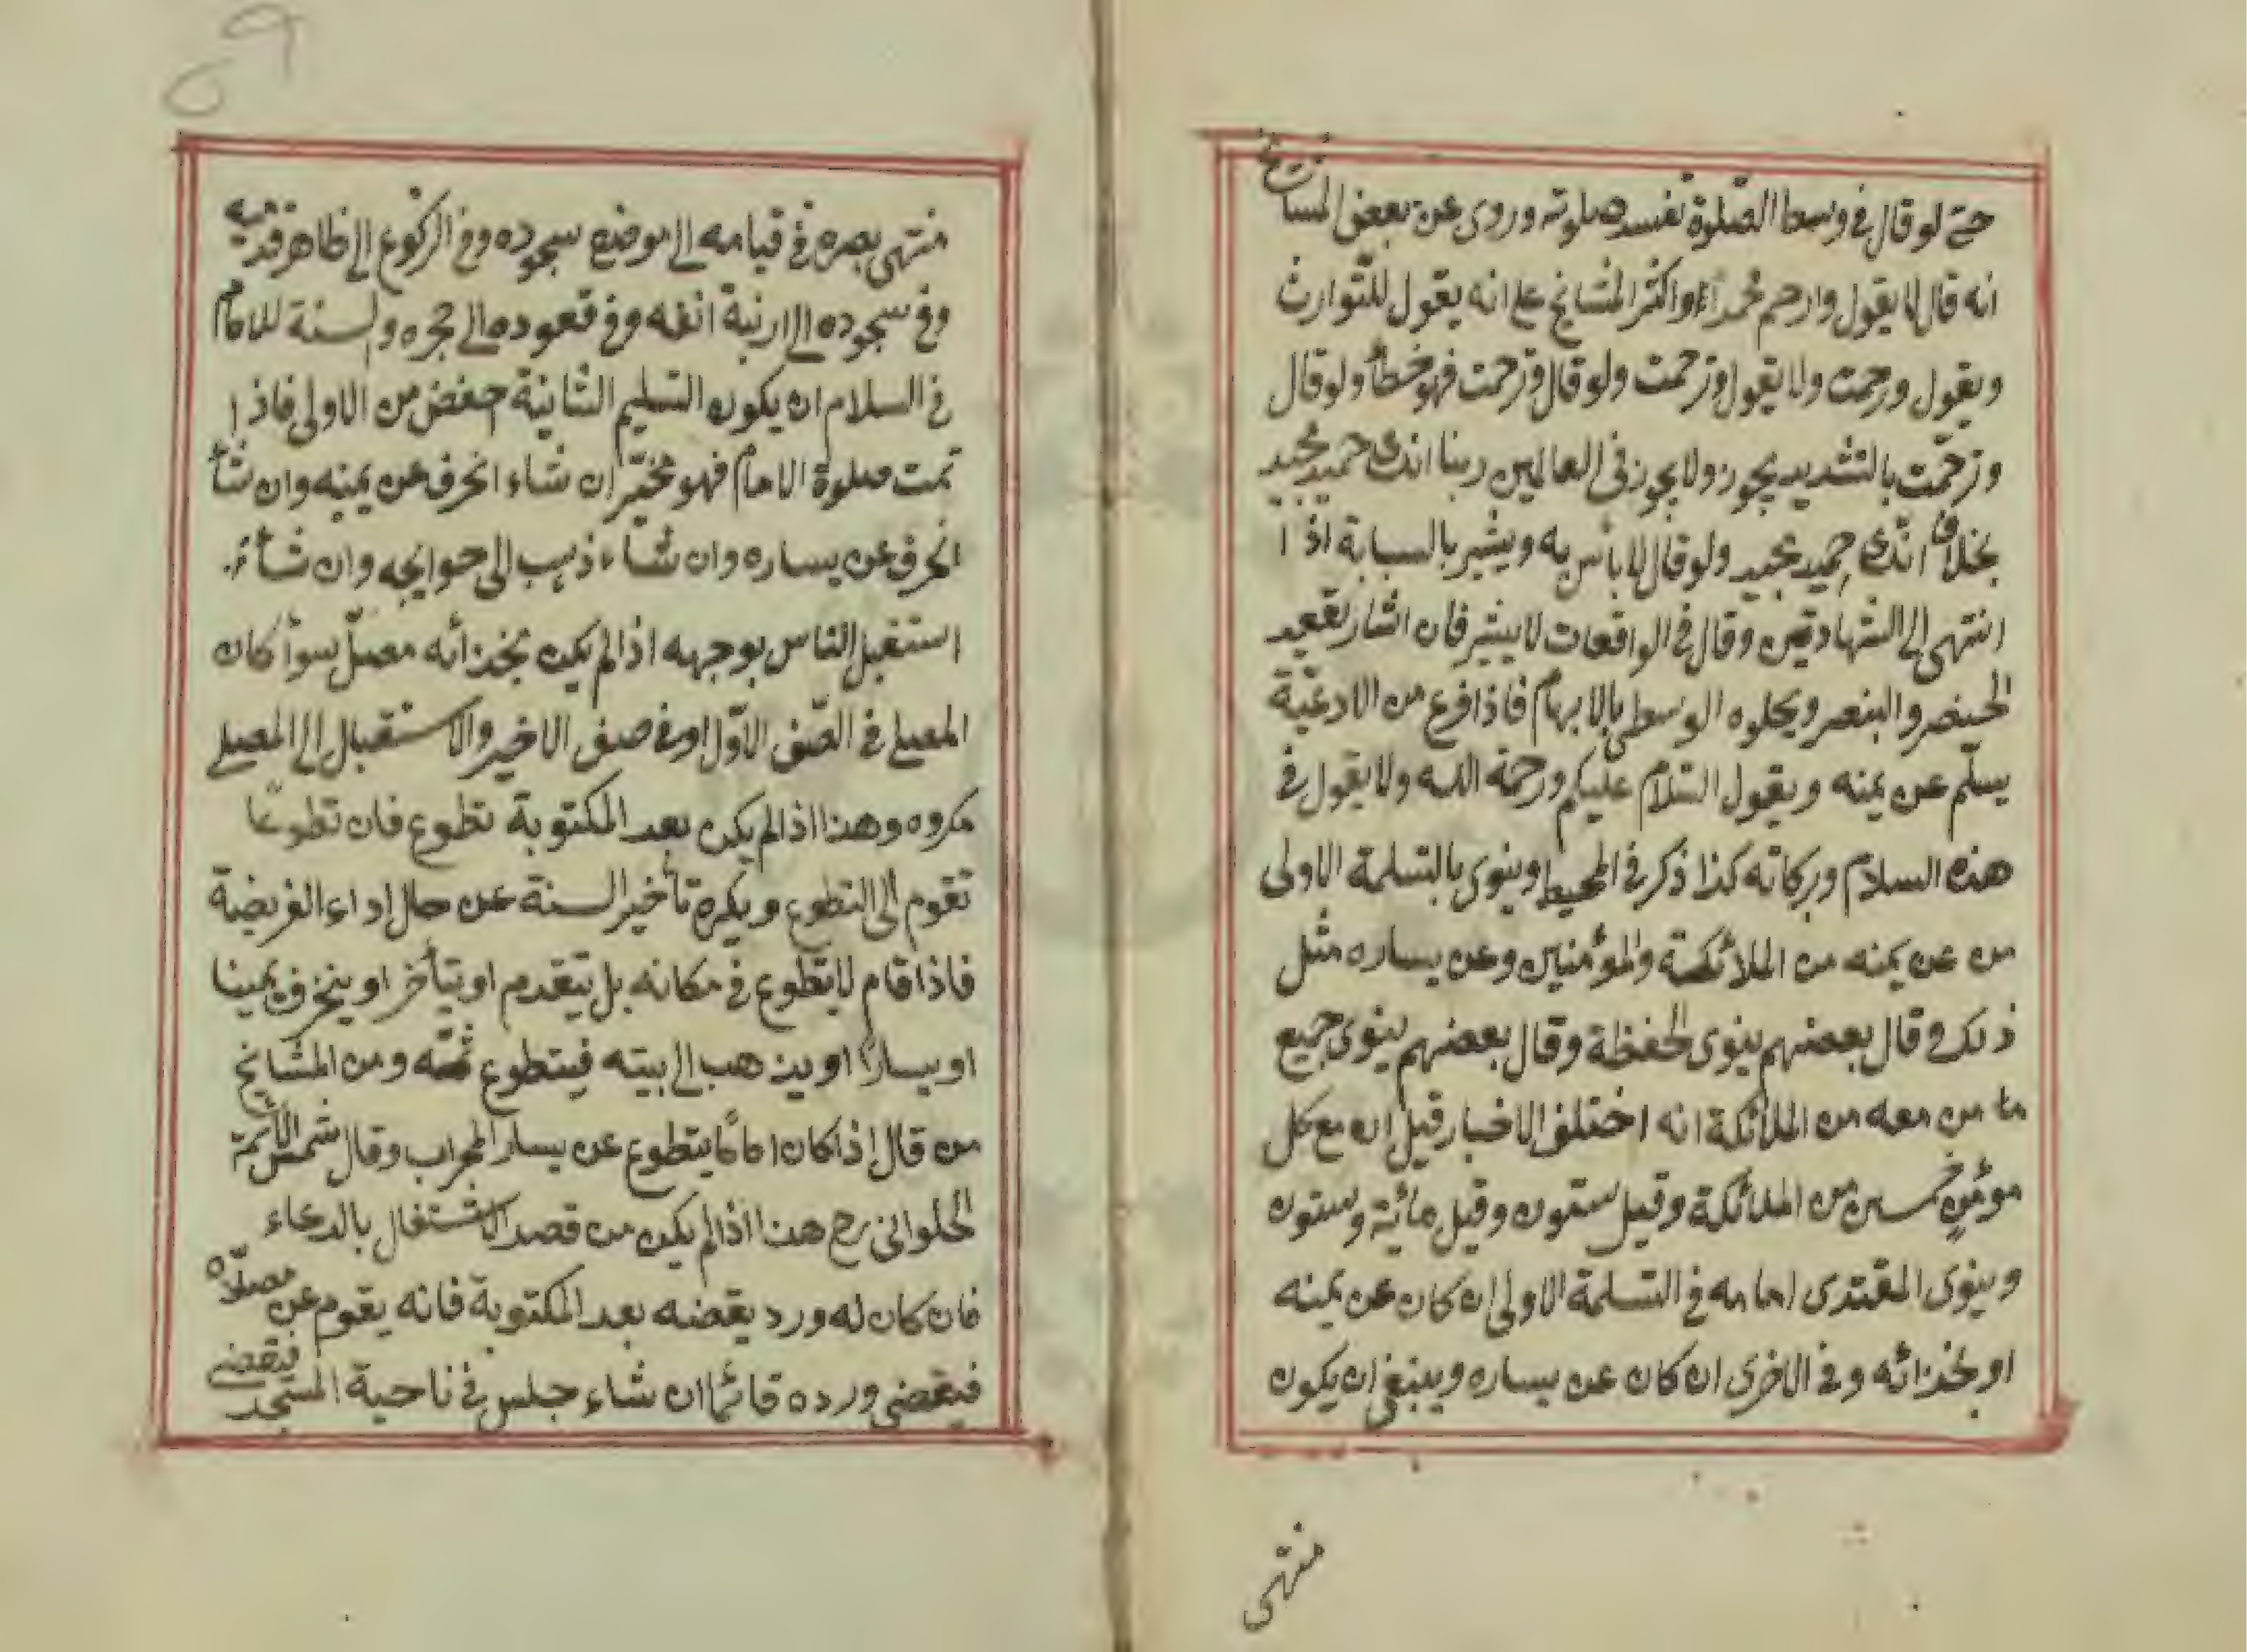 حتى لو قال في وسط الصّلوة تفسد صلوته وروى عن بعض المشايخ
انه قال لا يقول وارحم محمدا واكثر المشايخ على انه يقول للتّوارث
ويقول ورحمت ولا يقول وترحمت ولو قال وترحمت فهو خطأ ولو قال
وترحّمت بالتشديد يجوز ولا يجوز في العالمين ربنا انك حميد مجيد
بخلاف انّك حميد مجيد ولو قال لا بأس به ويشير بالسبابة اذا
انتهى الى الشهادتين وقال في الواقعات لا يشير فان اشار يقعد
الخنصر والبنصر ويحلوه الوسطى بالابهام فاذا فرغ من الادعيّة
يسلّم عن يمنه ويقول السّلام عليكم ورحمة الله ولا يقول في
هذه السلام وبركاته كذا ذكر في المحيط وينوى بالتسلمة الاولى
من عن يمنه من الملائكة والمؤمنين وعن يساره مثل
ذلك وقال بعضهم ينوى الحفظة وقال بعضهم ينوى جميع
ما من معه من الملائكة انه اختلف الاخبار قيل ان مع كل
مؤمن خمسين من الملائكة وقيل ستون وقيل مائية وستون
وينوى المقتدى امامه في التسلمة الاولى ان كان عن يمنه
او بخذائه وفي الاخرى ان كان عن يساره وينبغى ان يكون
منتهى
منتهى بصره في قيامه الى موضع سجوده وفي الركوع الى ظاهر قدميه
وفي سجوده الى ارنبة انفه وفي قعوده الى حجره والسنة للامام
في السلام ان يكون التسليم الثانية حفض من الاولى فاذا
تمت صلوة الامام فهو مخيّر ان شاء انحرف عن يمنه وان شأ
انحرف عن يساره وان شاء ذهب الى حوايجه وان شاء
استقبل الناس بوجهه اذا لم يكن بخذائه مصلّ سوأ كان
المصلى في الصّف الاوّل او في صف الاخير والاستقبال الى المصلى
مكروه وهذا اذا لم يكن بعد المكتوبة تطوع فان تطوعا
تقوم الى التطوع ويكره تأخير السنة عن حال اداء الفريضة
فاذا قام لا يتطوع في مكانه بل يتقدم او يتأخر او ينحرف يمينا
او يسارا او يذهب الى بيته فيتطوع ثمّه ومن المشايخ
من قال اذا كان اماما يتطوع عن يسار المحراب وقال شمس الائمة
الحلوانى رح هذا اذا لم يكن من قصد الاشتغال بالدعاء
فان كان له ورد يقضه بعد المكتوبة فانه يقوم عن مصلّاه
فيقضى ورده قائما ان شاء جلس في ناحية المسجد فيقضى